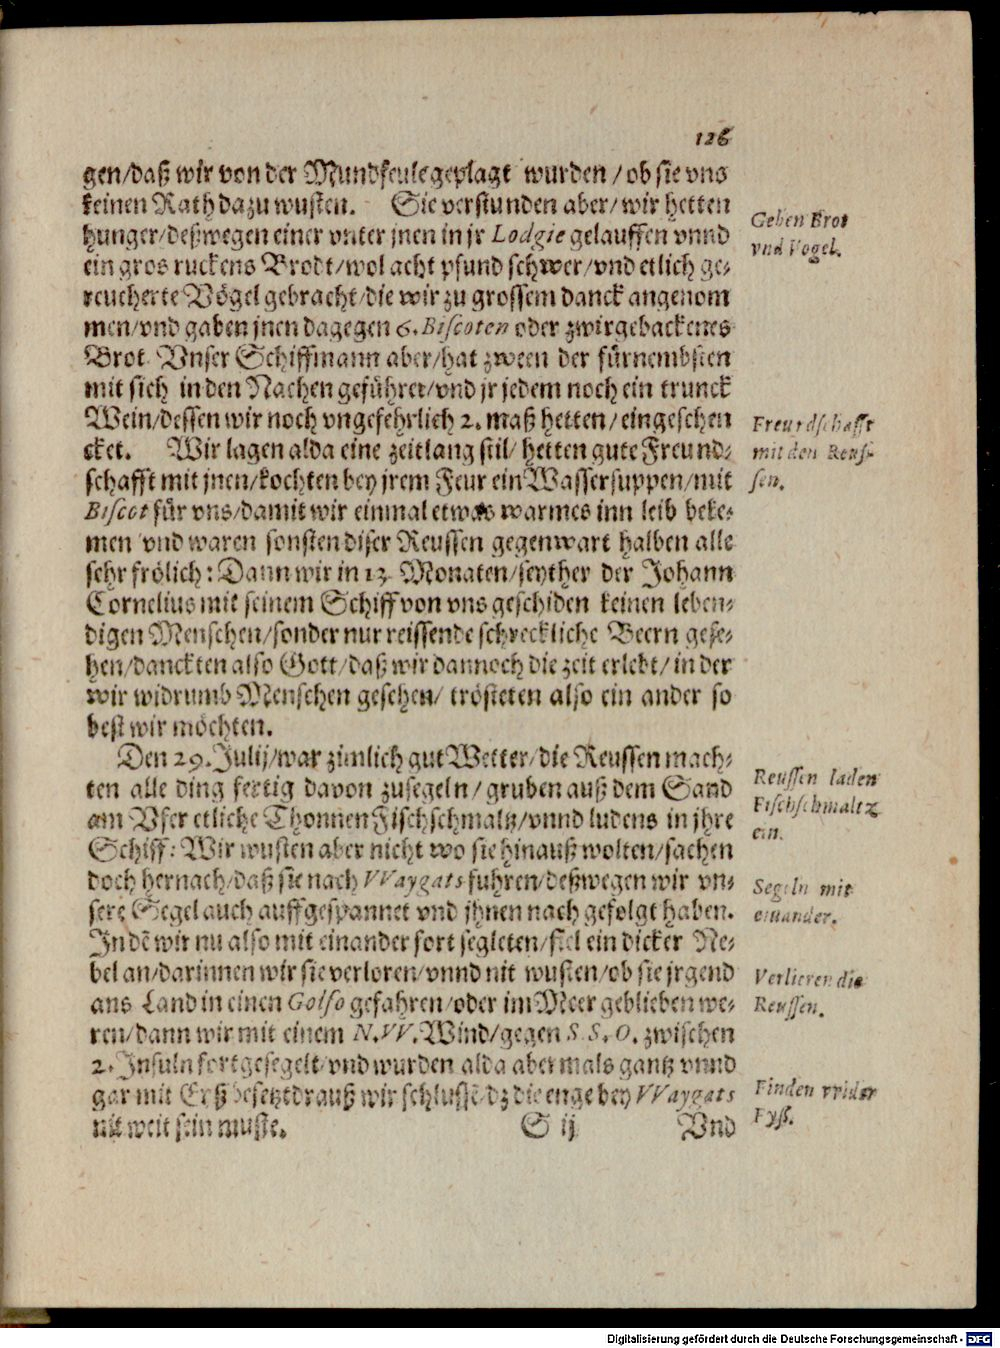 126
gen/daß wir von der Mundfeule geplagt wurden/ob sie vns
keinen Rath dazu wusten. Sie verstunden aber/wir hetten
hunger/deßwegen einer vnter jnen in jr Lodgie gelauffen vnnd
ein gros ruckens Brodt/wol acht pfund schwer/vnd etlich ge-
reucherte Vögel gebracht/die wir zu grossem danck angenom
men/vnd gaben jnen dagegen 6. Biscoten oder zwirgebackenes
Brot. Vnser Schiffmann aber/hat zween der fürnembsten
mit sich in den Nachen geführet/vnd jr jedem noch ein trunck
Wein/dessen wir noch vngefehrlich 2. maß hetten/eingeschen
cket. Wir lagen alda eine zeitlang stil/hetten gute Freund-
schafft mit jnen/kochten bey jrem Feur ein Wassersuppen/mit
Biscot für vns/damit wir einmal etwas warmes inn leib beke-
men vnd waren sonsten diser Reussen gegenwart halben alle
sehr frölich: Dann wir in 13. Monaten/seyther der Johann
Cornelius mit seinem Schiff von vns geschiden keinen leben-
digen Menschen/sonder nur reissende schreckliche Beern gese-
hen/danckten also Gott/daß wir dannoch die zeit erlebt/in der
wir widrumb Menschen gesehen/trösteten also ein ander so
best wir möchten.
Den 29. Julij/war zimlich gut Wetter/die Reussen mach-
ten alle ding fertig davon zusegeln/gruben auß dem Sand
am Vfer etliche Thonnen Fischschmaltz/vnnd ludens in jhre
Schiff: Wir wusten aber nicht wo sie hinauß wolten/sachen
doch hernach/daß sie nach VVaygats fuhren/deßwegen wir vn-
sere Segel auch auffgespannet vnd jhnen nach gefolgt haben.
In dē wir nu also mit einander fort segleten/fiel ein dicker Ne-
bel an/darinnen wir sie verloren/vnnd nit wusten/ob sie jrgend
ans Land in einen Golfo gefahren/oder im Meer geblieben we-
ren/dann wir mit einem N.VV. Wind/gegen S.S.O. zwischen
2. Insuln fortgesegelt/vnd wurden alda abermals gantz vnnd
gar mit Eyß besetzt drauß wir schlussē dz die enge bey VVaygats
nit weit sein muste. S ij Vnd
Geben Brot
vnd Vogel.
Freundschafft
mit den Reus-
sen.
Reussen laden
Fischschmaltz
ein.
Segeln mit
einander.
Verlieren die
Reussen.
Finden vvider
Eyß.
Digitalisierung gefördert durch die Deutsche Forschungsgemeinschaft - DFG